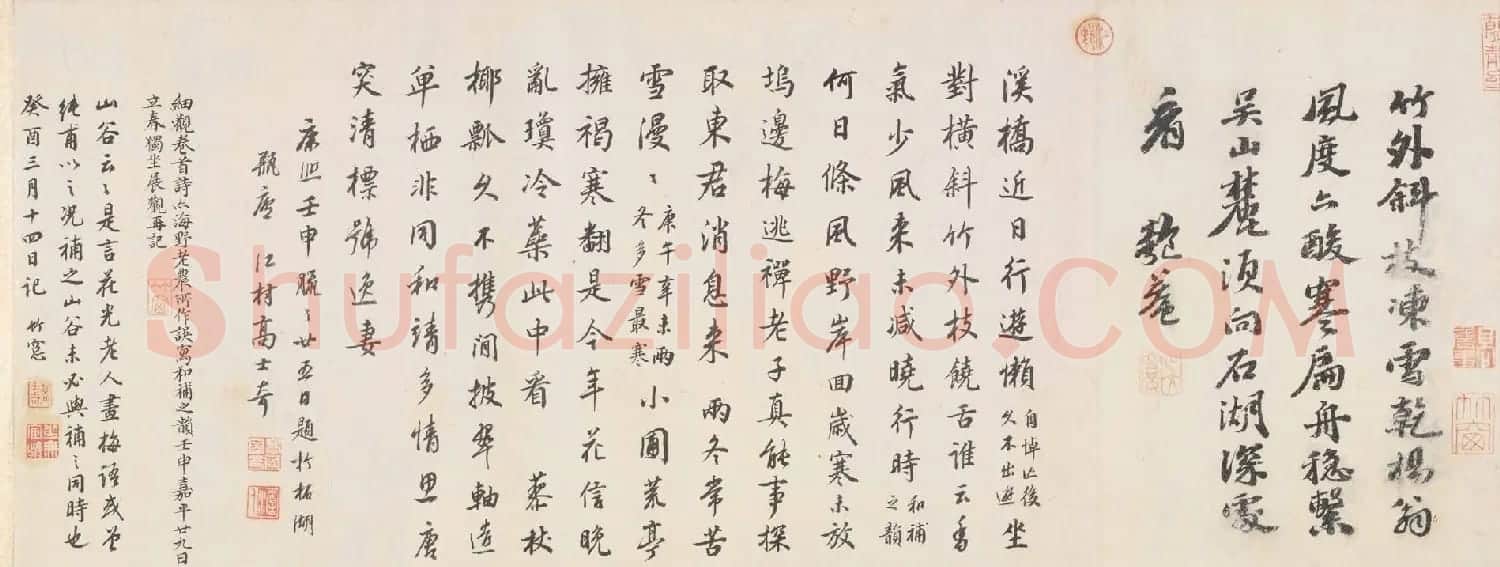 竹外斜枝凍雪乾楊翁
風度亦酸寒扁舟穩繫
吳山麓須向石湖深處
看 匏菴
溪橋近日行遊懶 自悼亡後久不出遊 坐
對橫斜竹外枝饒舌誰云香
氣少風來未減曉行時 和補之韻
何日條風野岸回歲寒未放
塢邊梅逃禪老子真能事探
取東君消息來 兩冬常苦
雪漫漫 庚午辛未兩冬多雪最寒 小圃荒亭
擁褐寒翻是今年花信晚
亂瓊冷蘂此中看 藜杖
椰瓢久不携澗披翠軸造
單栖非同和靖多情思唐
突清標號逸妻
康熙壬申臘月廿五日題於柘湖
瓶廬 江村高士奇
細觀卷首詩亦海野老農所作誤寫和補之韻壬申嘉平廿九日
立春獨坐展觀再記
山谷云云是言花光老人畫梅語或曾
純甫以之況補之山谷未必與補之同時也
癸酉三月十四日記 竹窓
Shufazijiao.COM